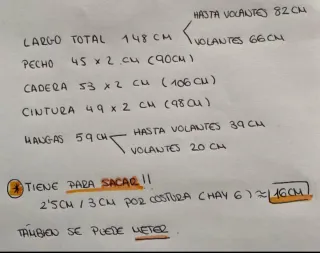 HASTA VOLANTES 82 CM
LARGO TOTAL 148 CM
VOLANTES 66 CM
PECHO 45 x 2 CM (90CM)
CADERA 53 x 2 CM (106 CM)
CINTURA 49 x 2 CM (98 CM)
MANGAS 59 CM HASTA VOLANTES 39 CM
VOLANTES 20 CM
* TIENE PARA SACAR!!
2'5CM / 3 CM POR COSTURA (HAY 6) ≈ 16CM
TAMBIEN SE PUEDE METER.